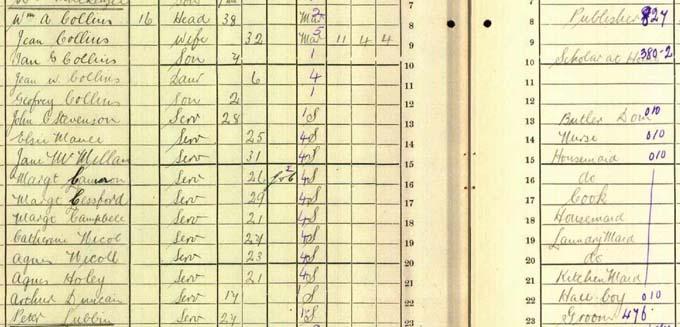 7 7
Wm A Collins 16 Head 38 Mar 2 8 8 Publisher 827
Jean Collins Wife 32 Mar 5 11 4 4 9 9
Ian G Collins Son 7 1 10 10 Scholar at Ho 380-2
Jean W. Collins Daur 6 4 11 11
Geofrey Collins Son 2 1 12 12
John C Stevenson Serv 28 1 S 13 13 Butler Dom 010
Elsie Serv 25 4 S 14 14 Nurse 010
Jane Mc Millan Serv 31 4 S 15 15 Housemaid 010
Margt Cameron Serv 26 4 S 16 16 do
Margt Cessford Serv 29 4 S 17 17 Cook
Margt Campbell Serv 21 4 S 18 18 Housemaid
Catherine Nicol Serv 4 S 19 19 Laundry Maid
Agnes Nicoll Serv 23 4 S 20 20 do
Agnes Holey Serv 21 4 S 21 21 Kitchen Maid
Arthur Duncan Serv 17 1 S 22 22 Hall-boy 010
Peter Serv 1 S 23 23 Groom 476